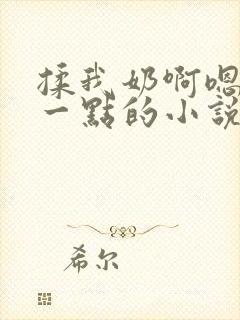 揉我奶啊嗯
一點的小說
希尔